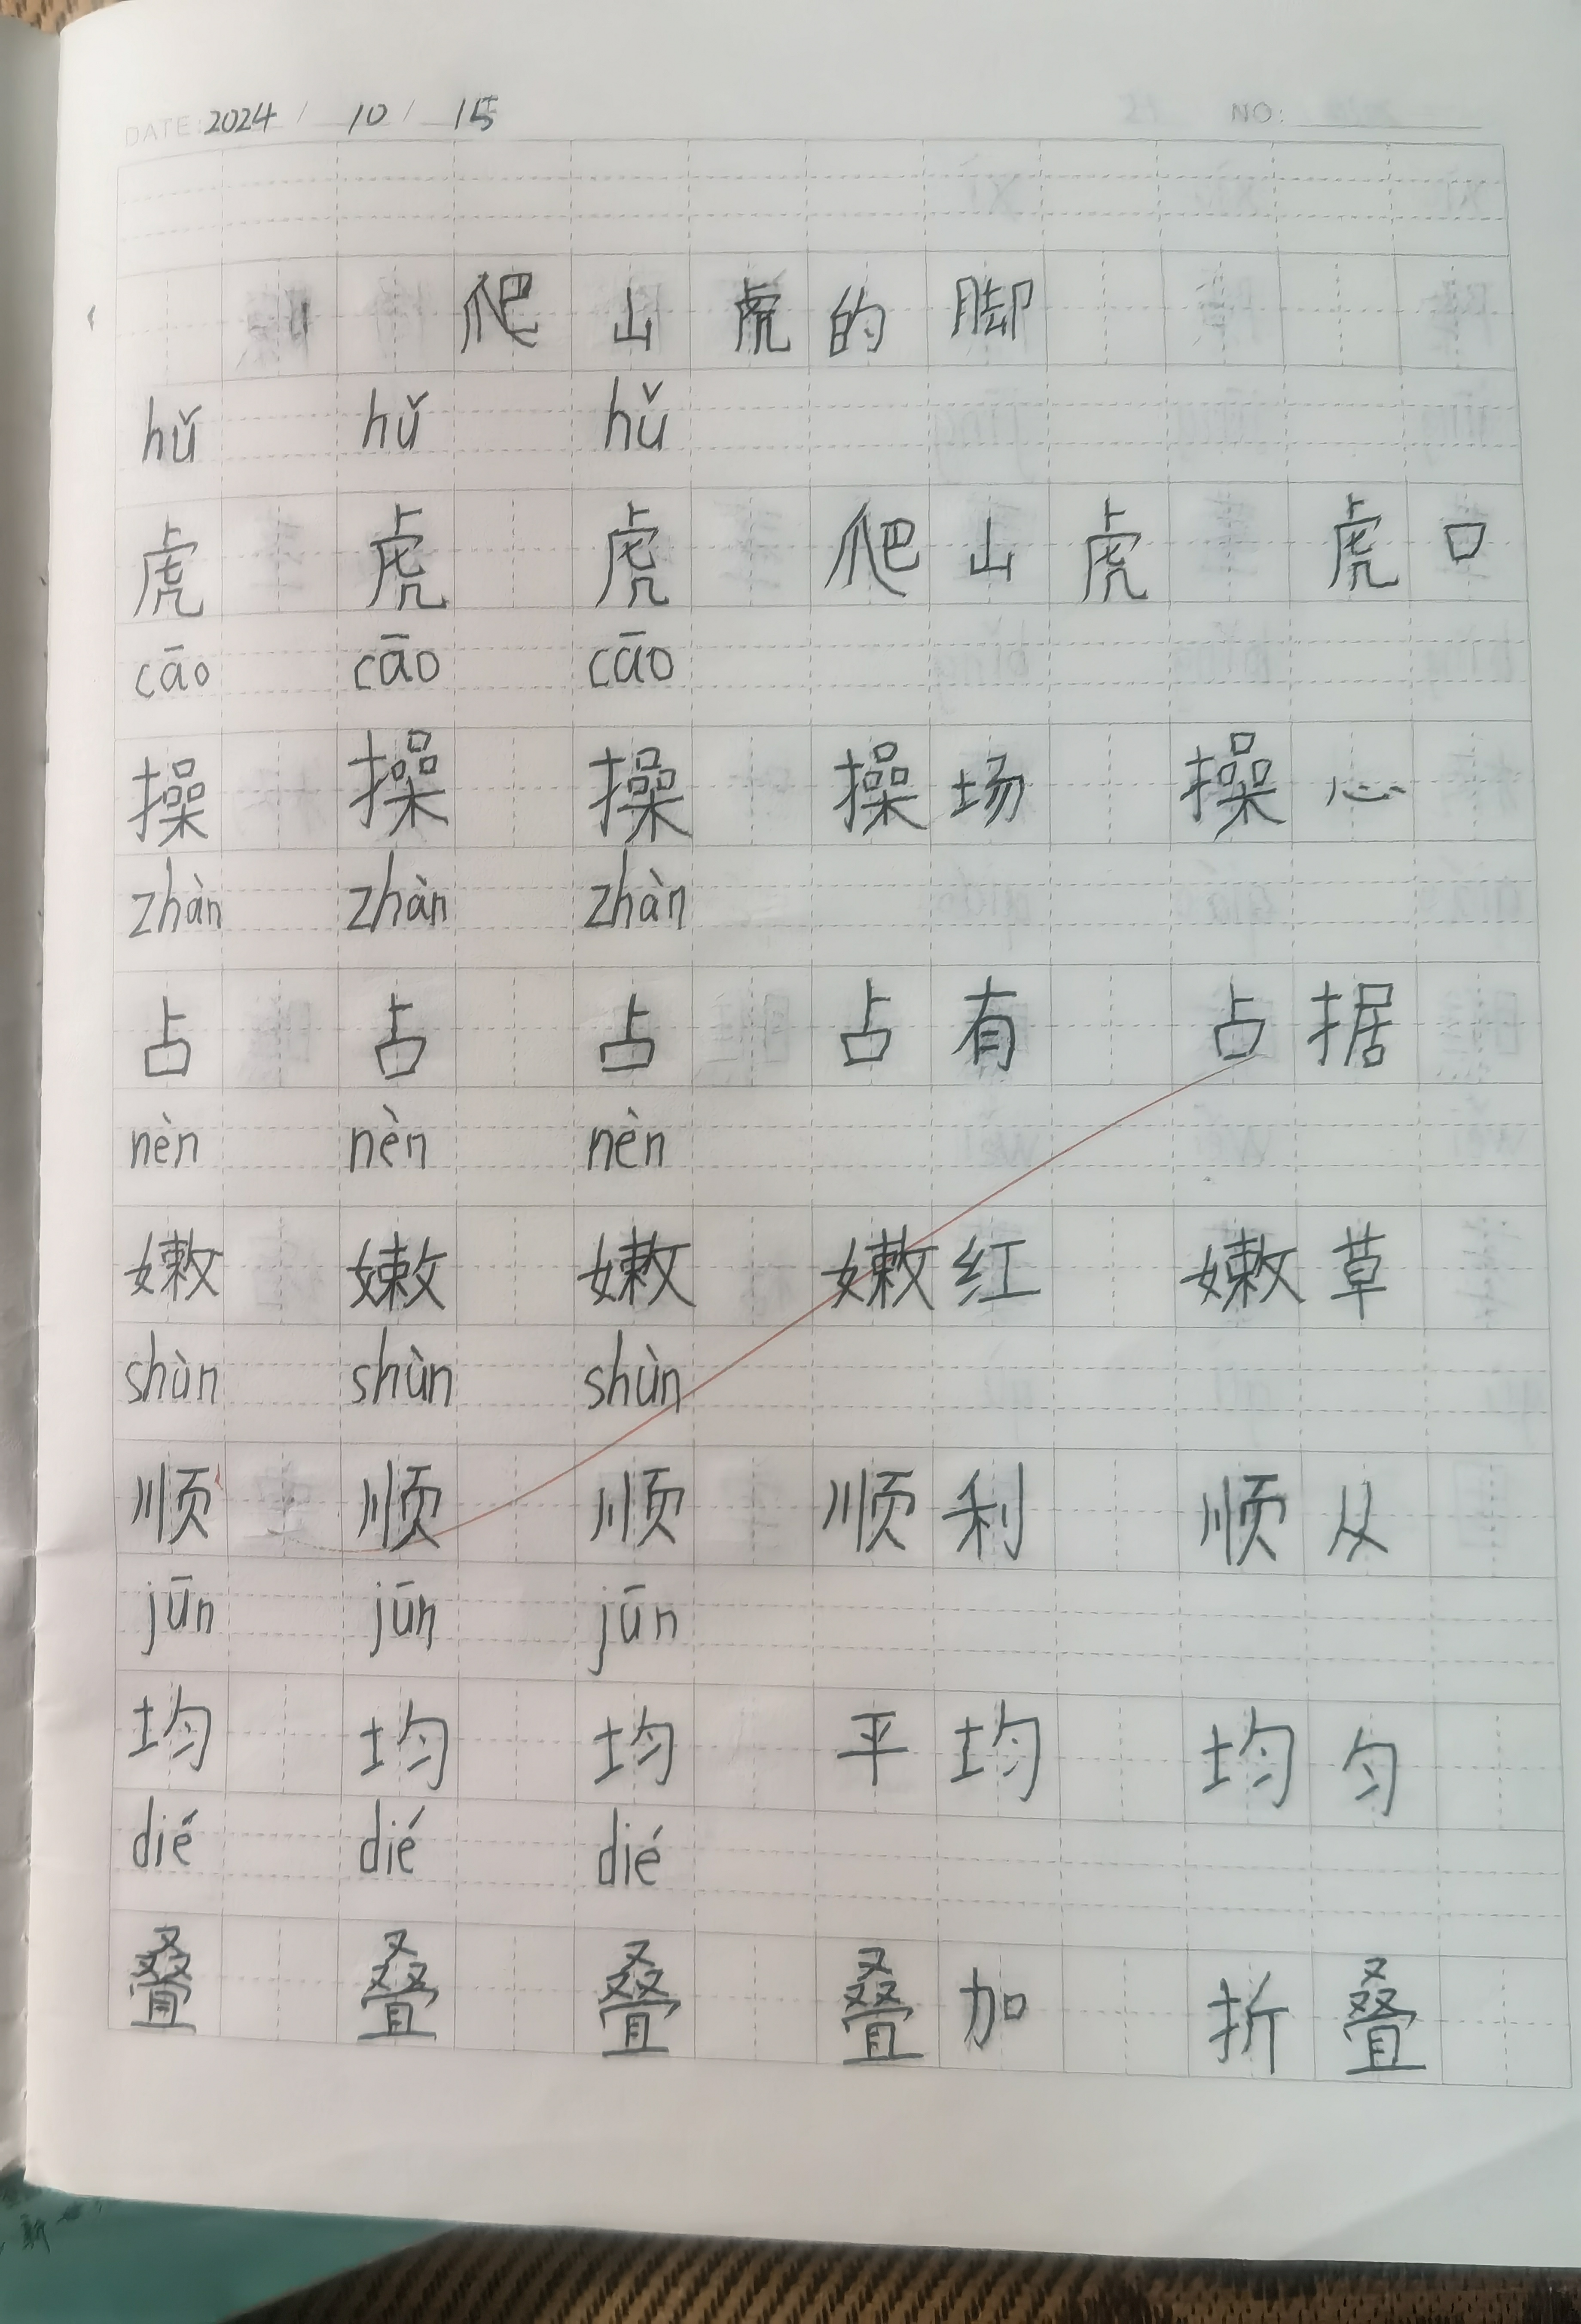 DATE: 2024 / 10 / 15 NO:
爬山虎的脚
hǔ hǔ hǔ
虎 虎 虎 爬山虎 虎口
cāo cāo cāo
操 操 操 操场 操心
zhàn zhàn zhàn
占 占 占 占有 占据
nèn nèn nèn
嫩 嫩 嫩 嫩红 嫩草
shùn shùn shùn
顺 顺 顺 顺利 顺从
jūn jūn jūn
均 均 均 平均 均匀
dié dié dié
叠 叠 叠 叠加 折叠